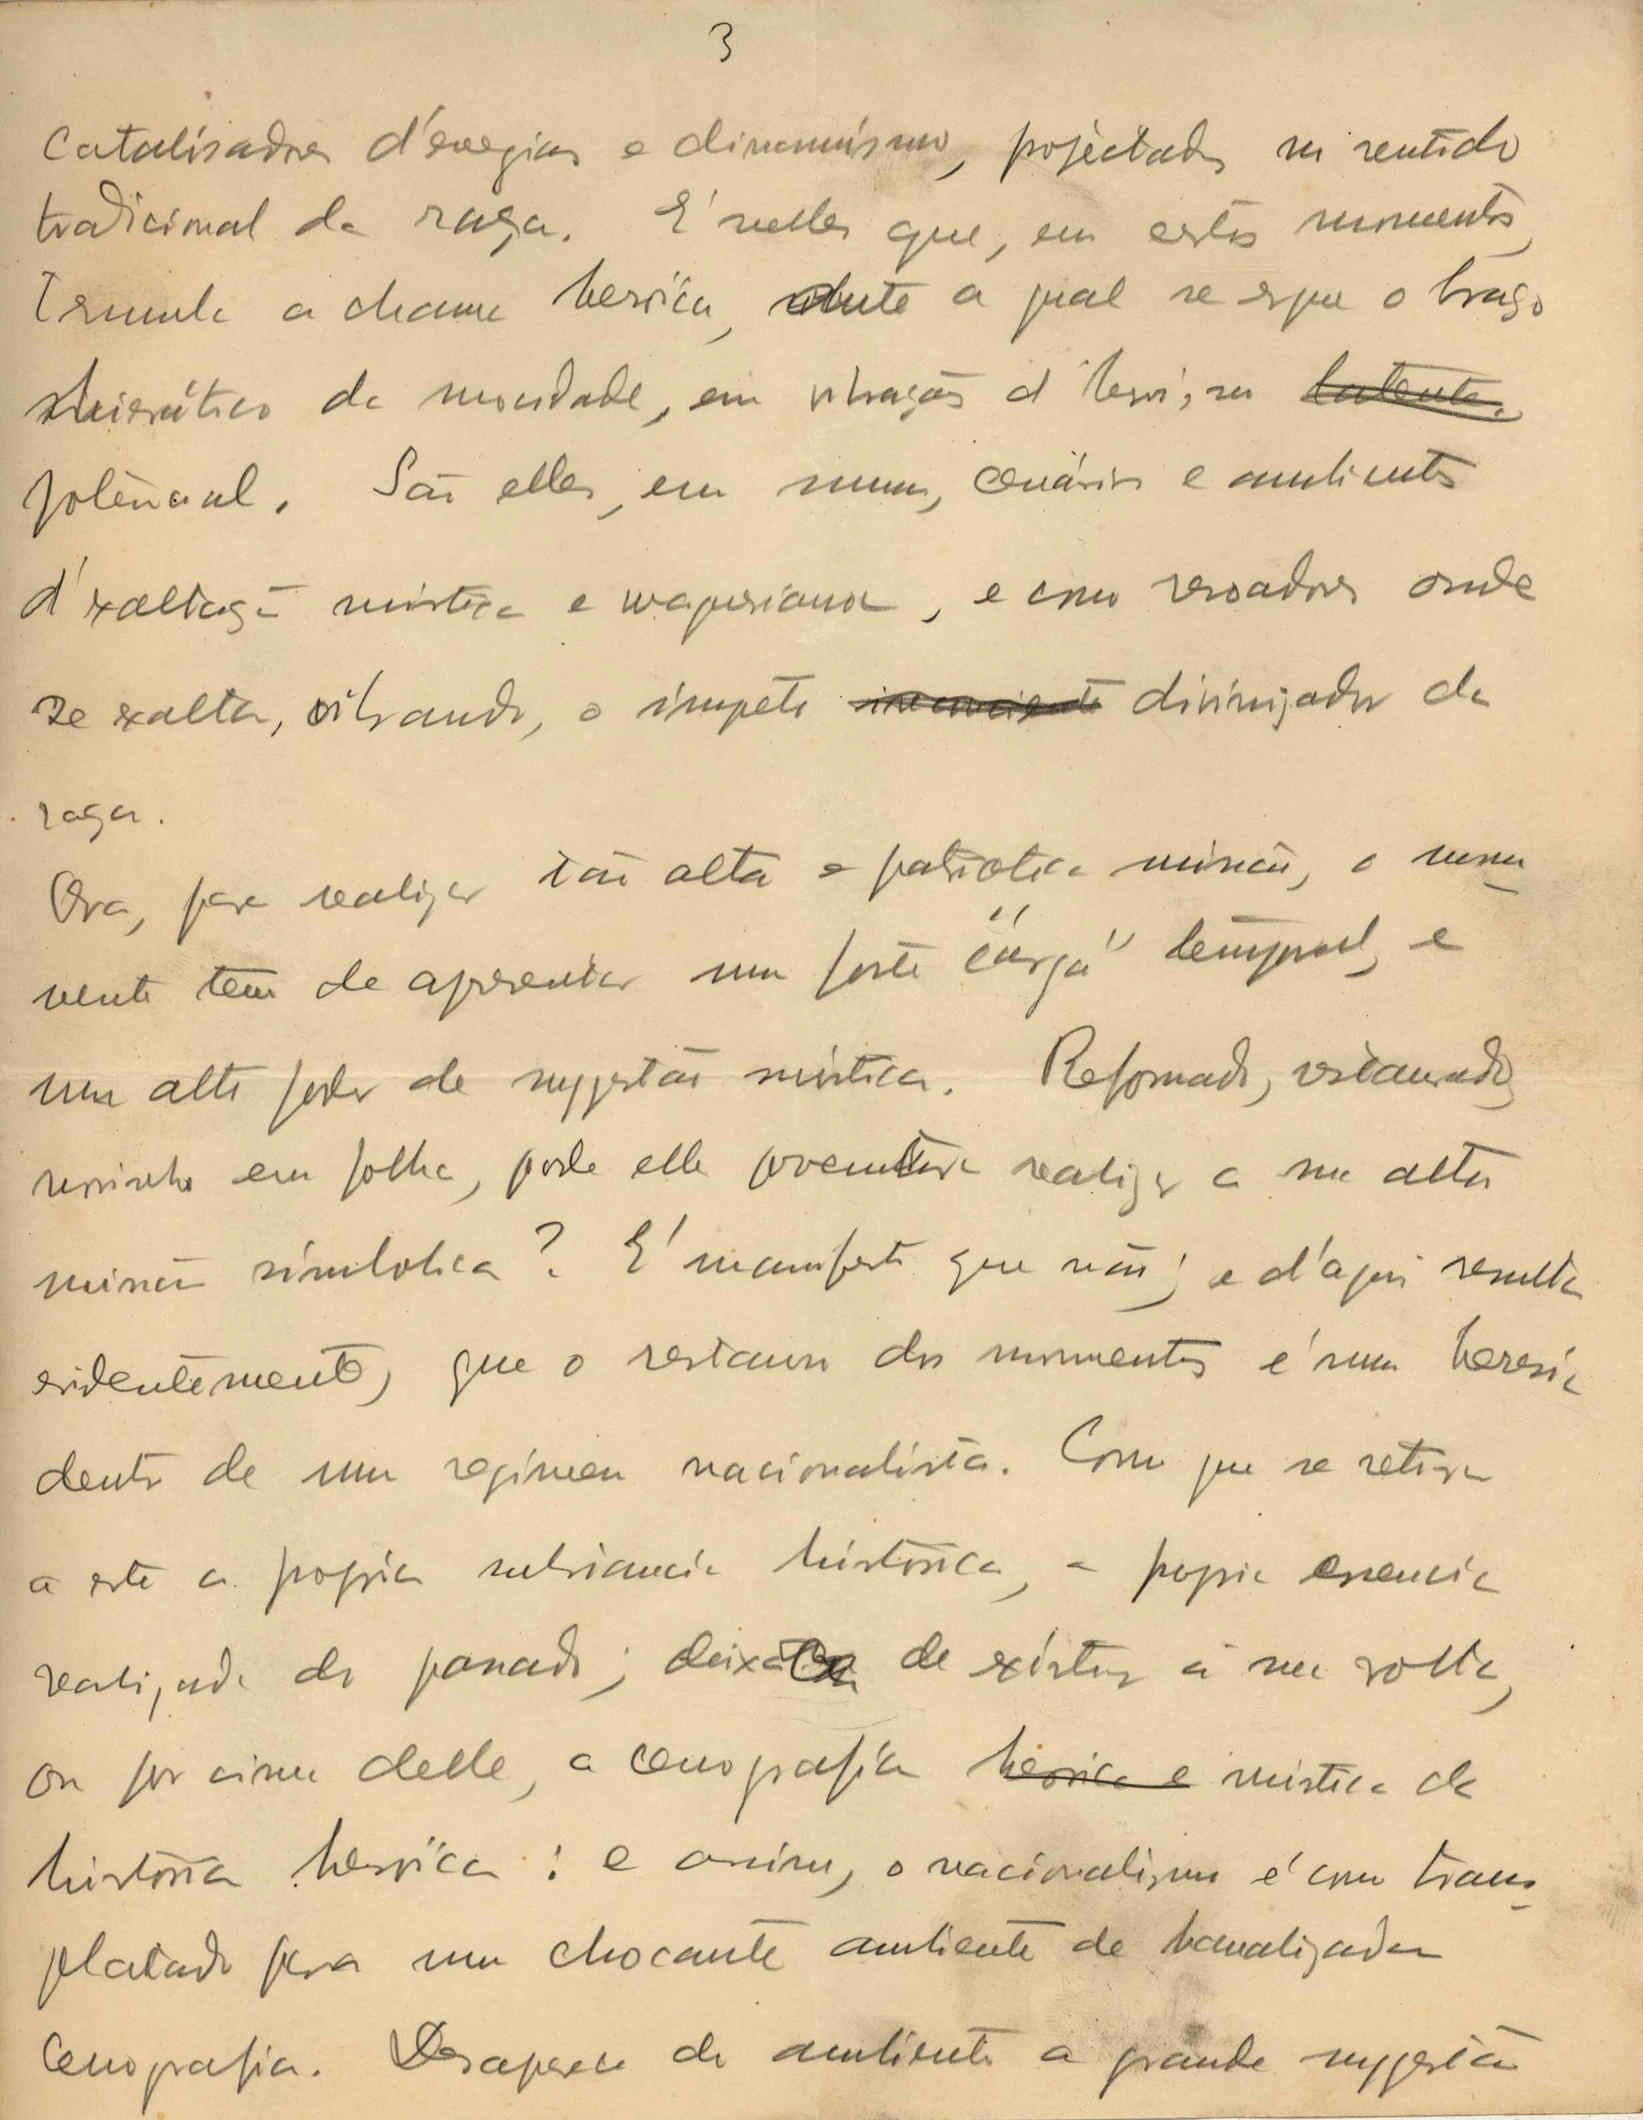 3
Catalisadores d'energias e dinamismo, projectados no sentido
tradicional da raça. E' nelles que, em certos momentos,
tremula a chama heroica, ante a qual se ergue o braço
hierático da mocidade, em vibrações d'heroismo latente.
potêncial. São elles, em suma, cenários e ambientes
d'exaltaçã mistica e wagneriana, e como resoadores onde
se exalta, vibrando, o impeto inconsciente divinizador da
raça.
Ora, para realizar tão alta e patriotica missão, o monu-
mento tem de apresentar uma forte "carga" temporal, e
um alto poder de suggestão mistica. Reformado, restaurado,
novinho em folha, pode elle porventura realizar a sua alta
missão simbolica? E' manifesto que não; e d'aqui resulta
evidentemente, que o restauro dos monumentos é uma heresia
dentro de um regimen nacionalista. Como que se retira
a este a propria substancia historica, a propria essencia
realizada do passado; deixa de existir á sua volta,
ou por cima delle, a cenografia heroica e mistica da
historia heroica: e assim, o nacionalismo é como trans-
platado para um chocante ambiente de banalizada
cenografia. Desaparece do ambiente a grande suggestão